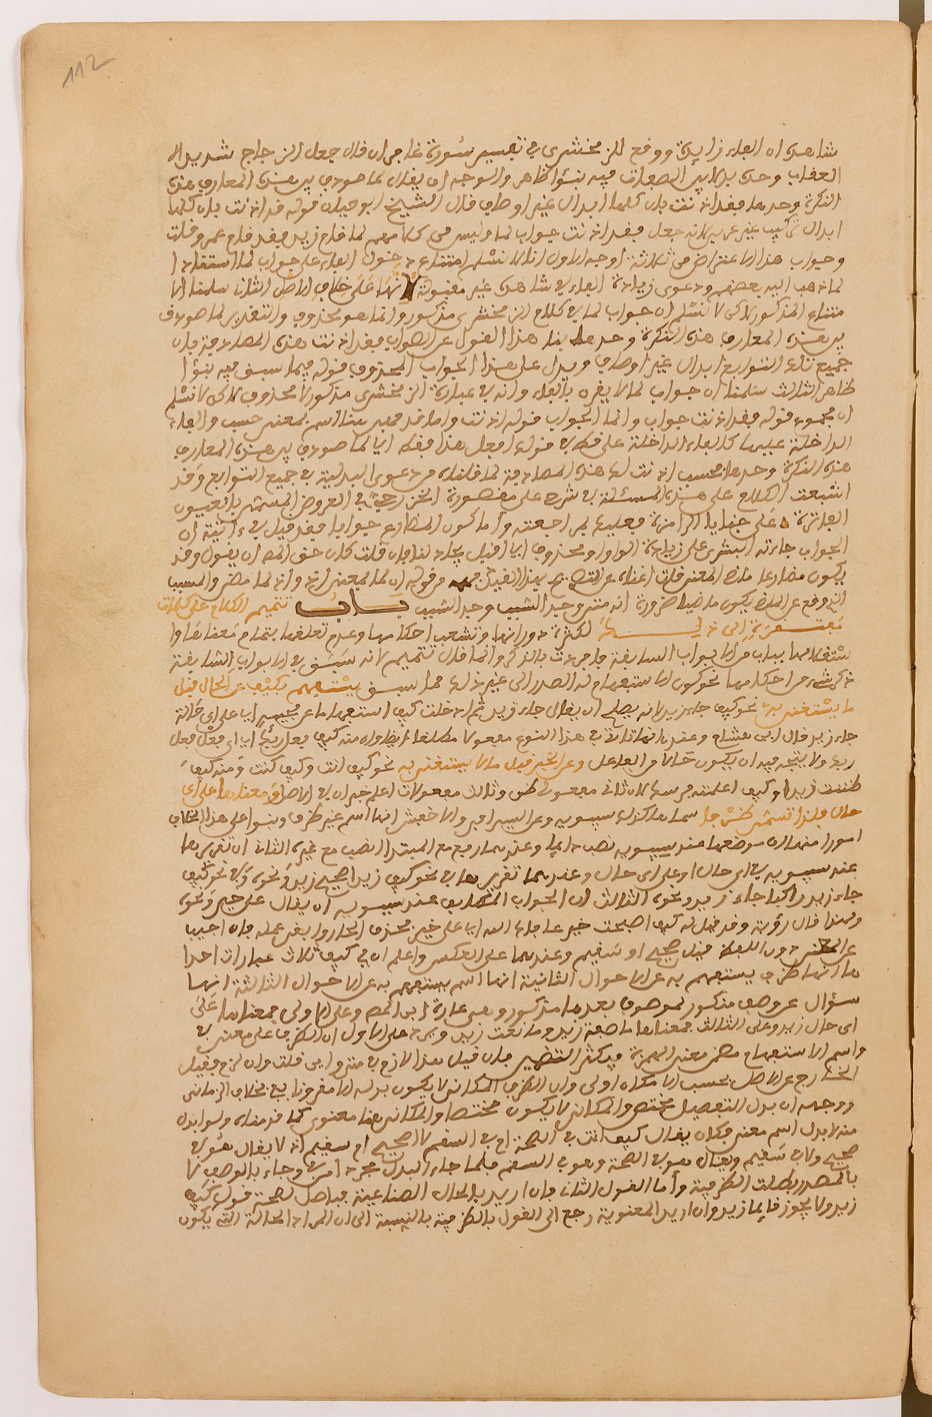 112
شاهدى ان الفاء زايدة ووقع للزمخشرى في تفسير سورة غافر ان قال جعل الزجاج شديد ا
العقاب وحده بدلا بين الصفات فيه نبوّ ظاهر والوجه ان يقال لما صودف بين هذه المعارف هذه
النكرة وحدها فقد اذنت بان كلها ابدال غير اوصاف قال الشيخ ابو حيان قوله فقد اذنت بان كلها
ابدال تركيب غير عربى لانه جعل فقد اذنت جواب لما وليس من كلامهم لما قام زيد فقد قام عمرو قلت
وجواب هذا الاعتراض من ثلاثة اوجه الاول انا لا نسلم امتناع دخول الفاء على جواب لما استنادا
لما ذهب اليه بعضهم ودعوى زيادة الفاء فى شاهدى غير مقبولة لانها على خلاف الاصل الثانى سلمنا ا
متناع المذكور لاكن لا نسلم ان جواب لما فى كلام الزمخشرى مذكور وانما هو محذوف والتقدير لما صودف
بين هذه المعارف هذه النكرة وحدها هذا القول عن الصواب فقد اذنت هذه المصادفة بان
جميع تلك التوابع ابدال غير اوصاف ويدل على هذا الجواب المحذوف قوله فيما سبق فيه نبوّ
ظاهر الثالث سلمنا ان جواب لما لا يقرن بالفاء وانه فى عبارة الزمخشرى مذكور لا محذوف لاكن لا نسلم
ان مجموع قوله فقد اذنت جواب وانما الجواب قوله اذنت واما قد فهى هنا اسم بمعنى حسب والفاء
الداخلة عليها كالفاء الداخلة على قط فى قولك افعل هذا فقط اى لما صودف بين هذه المعارف
هذه النكرة وحدها فحسب اذنت لك هذه المصادفة لما قلناه من دعوى البدلية فى جميع التوابع وقد
اشبعت الكلام على هذه المسئلة فى شرح على مقصورة الخزرجى فى العروض المسمى بالعيون
الفاخرة على خبايا الرامزة فعليك بمراجعته واما كون المضارع جوابا فقد قيل فى اية ان
الجواب جاءته البشرى على زيادة الواو او محذوف اى اقبل يجادلنا فان قلت كان حق المص ان يقول وقد
يكون مضارعا ماض المعنى قلت اغناه عن التصريح بهذا القيد فهمه من قوله ان لما بمعنى اذ وانه لما مضى والسبب
الذى وقع عن الماض يكون ماضيا ضرورة انه متى وجد السبب وجد المسبب بــاب تتميم الكلام على كلمات
مفتقرة الى ذلك لكثرة دورانها وتشعب احكامها وعدم تعلقها بتمام معناها و ا
ستقلالها بباب من الابواب السابقة فافردت بالذكر وانما قال تتميم لانه سبق فى الابواب السابقة
ذكر شىء من احكامها نحو كون الاستفهام له الصدر الى غير ذلك مما سبق يستفهم بكيف عن الحال قبل
ما يستغنى به نحو كيف جاء زيد لانه يصلح ان يقال جاء زيد ثم ادخلت كيف استفهاما عن مجيئه اى على اى حالة
جاء زيد قال ابن هشام وعندى انها تاتى فى هذا النوع مفعولا مطلقا ايضا وان منه كيف فعل ربك اى اى فعل فعل
ربك ولا يتجه فيه ان يكون حالا من الفاعل وعن الخبر قبل ما لا يستغنى به نحو كيف انت وكيف كنت ومنه كيف
ظننت زيدا وكيف اعلمته فرسك لان ثانى مفعولى ظن وثالث مفعولات اعلم خبران فى الاصل ومعناها على اى
حال فلذا تسمى ظرفا سماها كذلك سيبويه وعن السيرافى والاخفش انها اسم غير ظرف وبنوا على هذا الخلاف
امورا منها ان موضعها عند سيبويه نصب دايما وعندهما رفع مع المبتدا نصب مع غيره الثانى ان تقديرها
عند سيبويه فى اى حال او على اى حال وعندهما تقديرها فى نحو كيف زيد اصحيح زيد ونحوه وفى نحو كيف
جاء زيد راكبا جاء زيد ونحوه الثالث ان الجواب المطابق عند سيبويه ان يقال على خير ونحوه
ولهذا قال رؤبة وقد قيل له كيف اصبحت خير عافاك الله اى على خير فحذف الجار وابقى عمله فان اجيب
على المعنى دون اللفظ قيل صحيح او سقيم وعندهما على العكس واعلم ان فى كيف ثلاث عبارات احدا
ها انها ظرف يستفهم به عن الاحوال الثانية انها اسم يستفهم به عن الاحوال الثالثة انها
سؤال عن وصف مذكور لموصوف بعدها مذكور وهى عبارة ابى المص وعلى الاولى فمعناها على
اى حال زيد وعلى الثالث فمعناها ما صفة زيد وما نعت زيد ويرد على الاول ان الظرف على معنى فى
واسم الاستفهام مضمن معنى الهمزة فيكثر التضمير فان قيل هذا لازم فى متى واين قلت وان لزم فيقبل
الخارج عن الاصل بحسب الامكان اولى وان الظرف المكانى لا يكون بدله الا مقرونا بفى بخلاف الزمانى
ووجهه ان بدل التفصيل مختص والمكانى لا يكون مختصا والمكانى هنا معنوى كما قدمناه ولو ابدل
منه لابدل اسم معنى فكان يقال كيف انت فى الصحة ام فى السقم لا اصحيح ام سقيم اذ لا يقال هو فى
صحيح ولا فى سقيم ويقال هو فى الصحة وهو فى السقم فلما جاء البدل مجردا من فى وجاء بالوصف لا
بالمصدر بطلت الظرفية واما القول الثانى فان اريد بالحال الصناعية فباطل لصحة قولك كيف
زيد ولا يجوز قايما زيد وان اريد المعنوية رجع الى القول بالظرفية بالنسبة الى ان المراد الحالة التى يكون